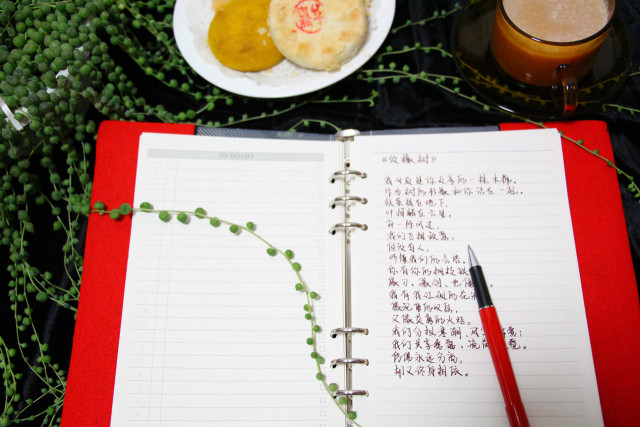 TO DO LIST
《致橡树》
我必须是你近旁的一株木棉,
作为树的形象和你站在一起。
根紧握在地下
叶相触在云里。
每一阵风过,
我们互相致意,
但没有人,
听懂我们的言语。
你有你的铜枝铁
像刀、像剑、也像
我有我红硕的花
像沉重的叹息
又像英勇的火炬。
我们分担寒潮、风
我们共享雾霭、流岚
仿佛永远分离,
却又终身相依。